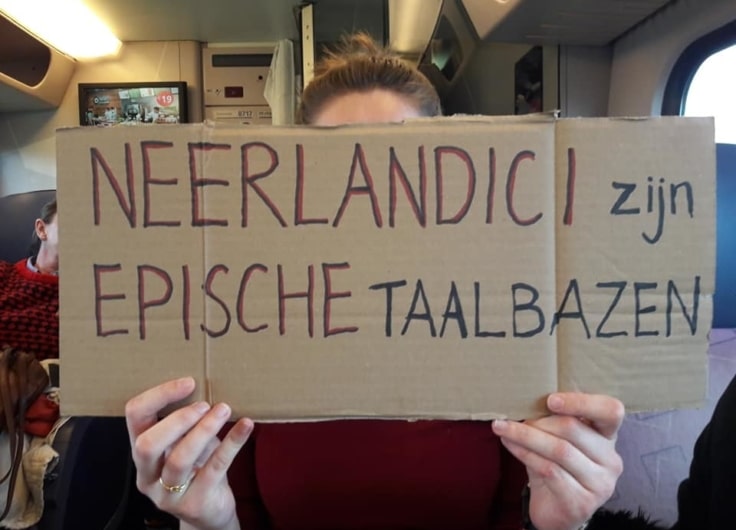 NEERLANDICI zijn
EPISCHE TAALBAZEN